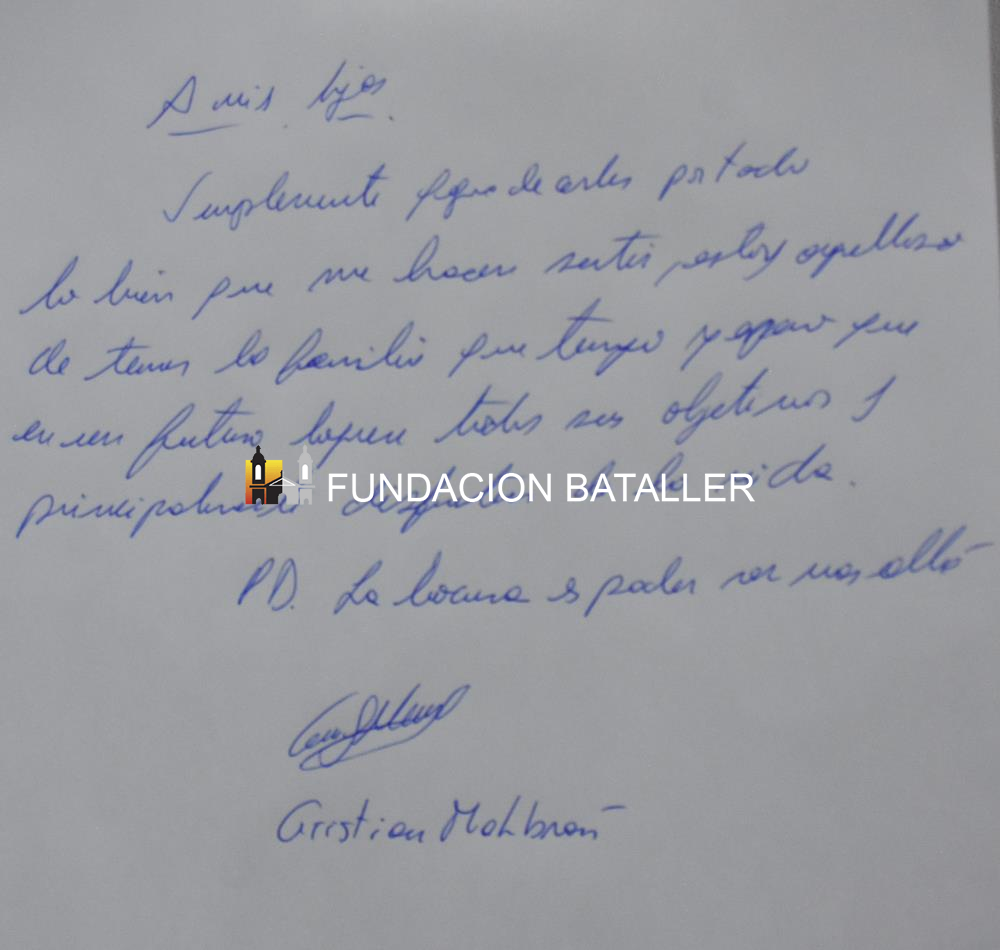 A mis hijos.
Simplemente agradecerles por todo
lo bien que me hacen sentir, estoy orgulloso
de tener la familia que tengo y espero que
en un futuro logren todos sus objetivos y
principalmente disfruten de la vida.
FUNDACION BATALLER
PD. La locura es poder ver mas allá
Cristian